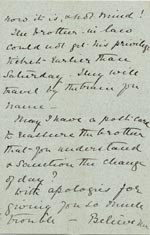 now it is, & not mind!
The brother-in-law
could not get his privilege
ticket earlier than
Saturday. They will
travel by the train you
name—
May I have a post-card
to reassure the brother
that you understand
& sanction the change
of day?
With apologies for
giving you so much
trouble — Believe me